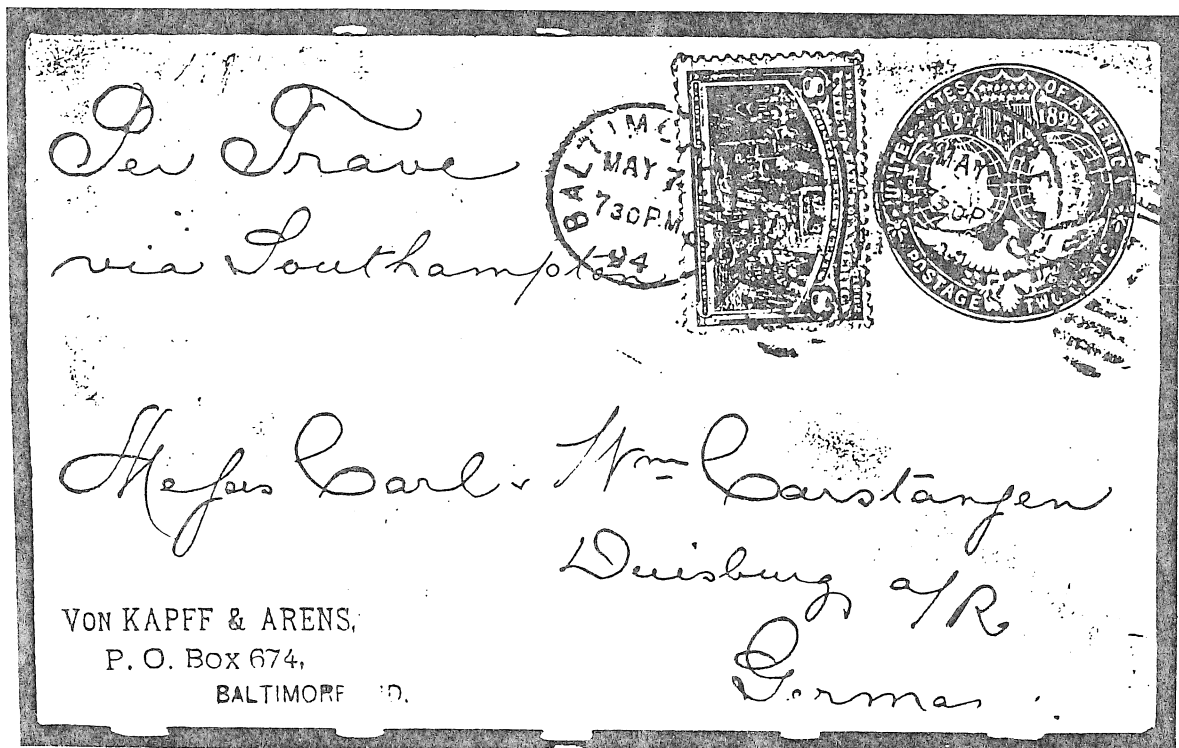 Per Trave
via Southampton
BALTIMO
MAY
730P.M
94
UNITED STATES OF AMERICA
1492 1892
MAY
30P
POSTAGE TWO CENTS
Messrs Carl & Wm Carstanjen
Duisburg a/R
German
VON KAPFF & ARENS,
P. O. Box 674,
BALTIMORE D.